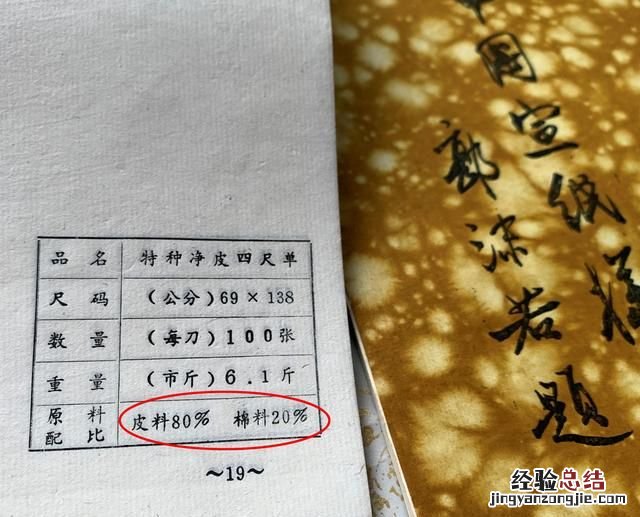 品名 特种净皮四尺单
尺码 (公分)69×138
数量 (每刀)100张
重量 (市斤)6.1斤
原料
配比 皮料80% 棉料20%
～19～
中国宣纸样
郭沫若题
经验总结
jingyanzongjie.com